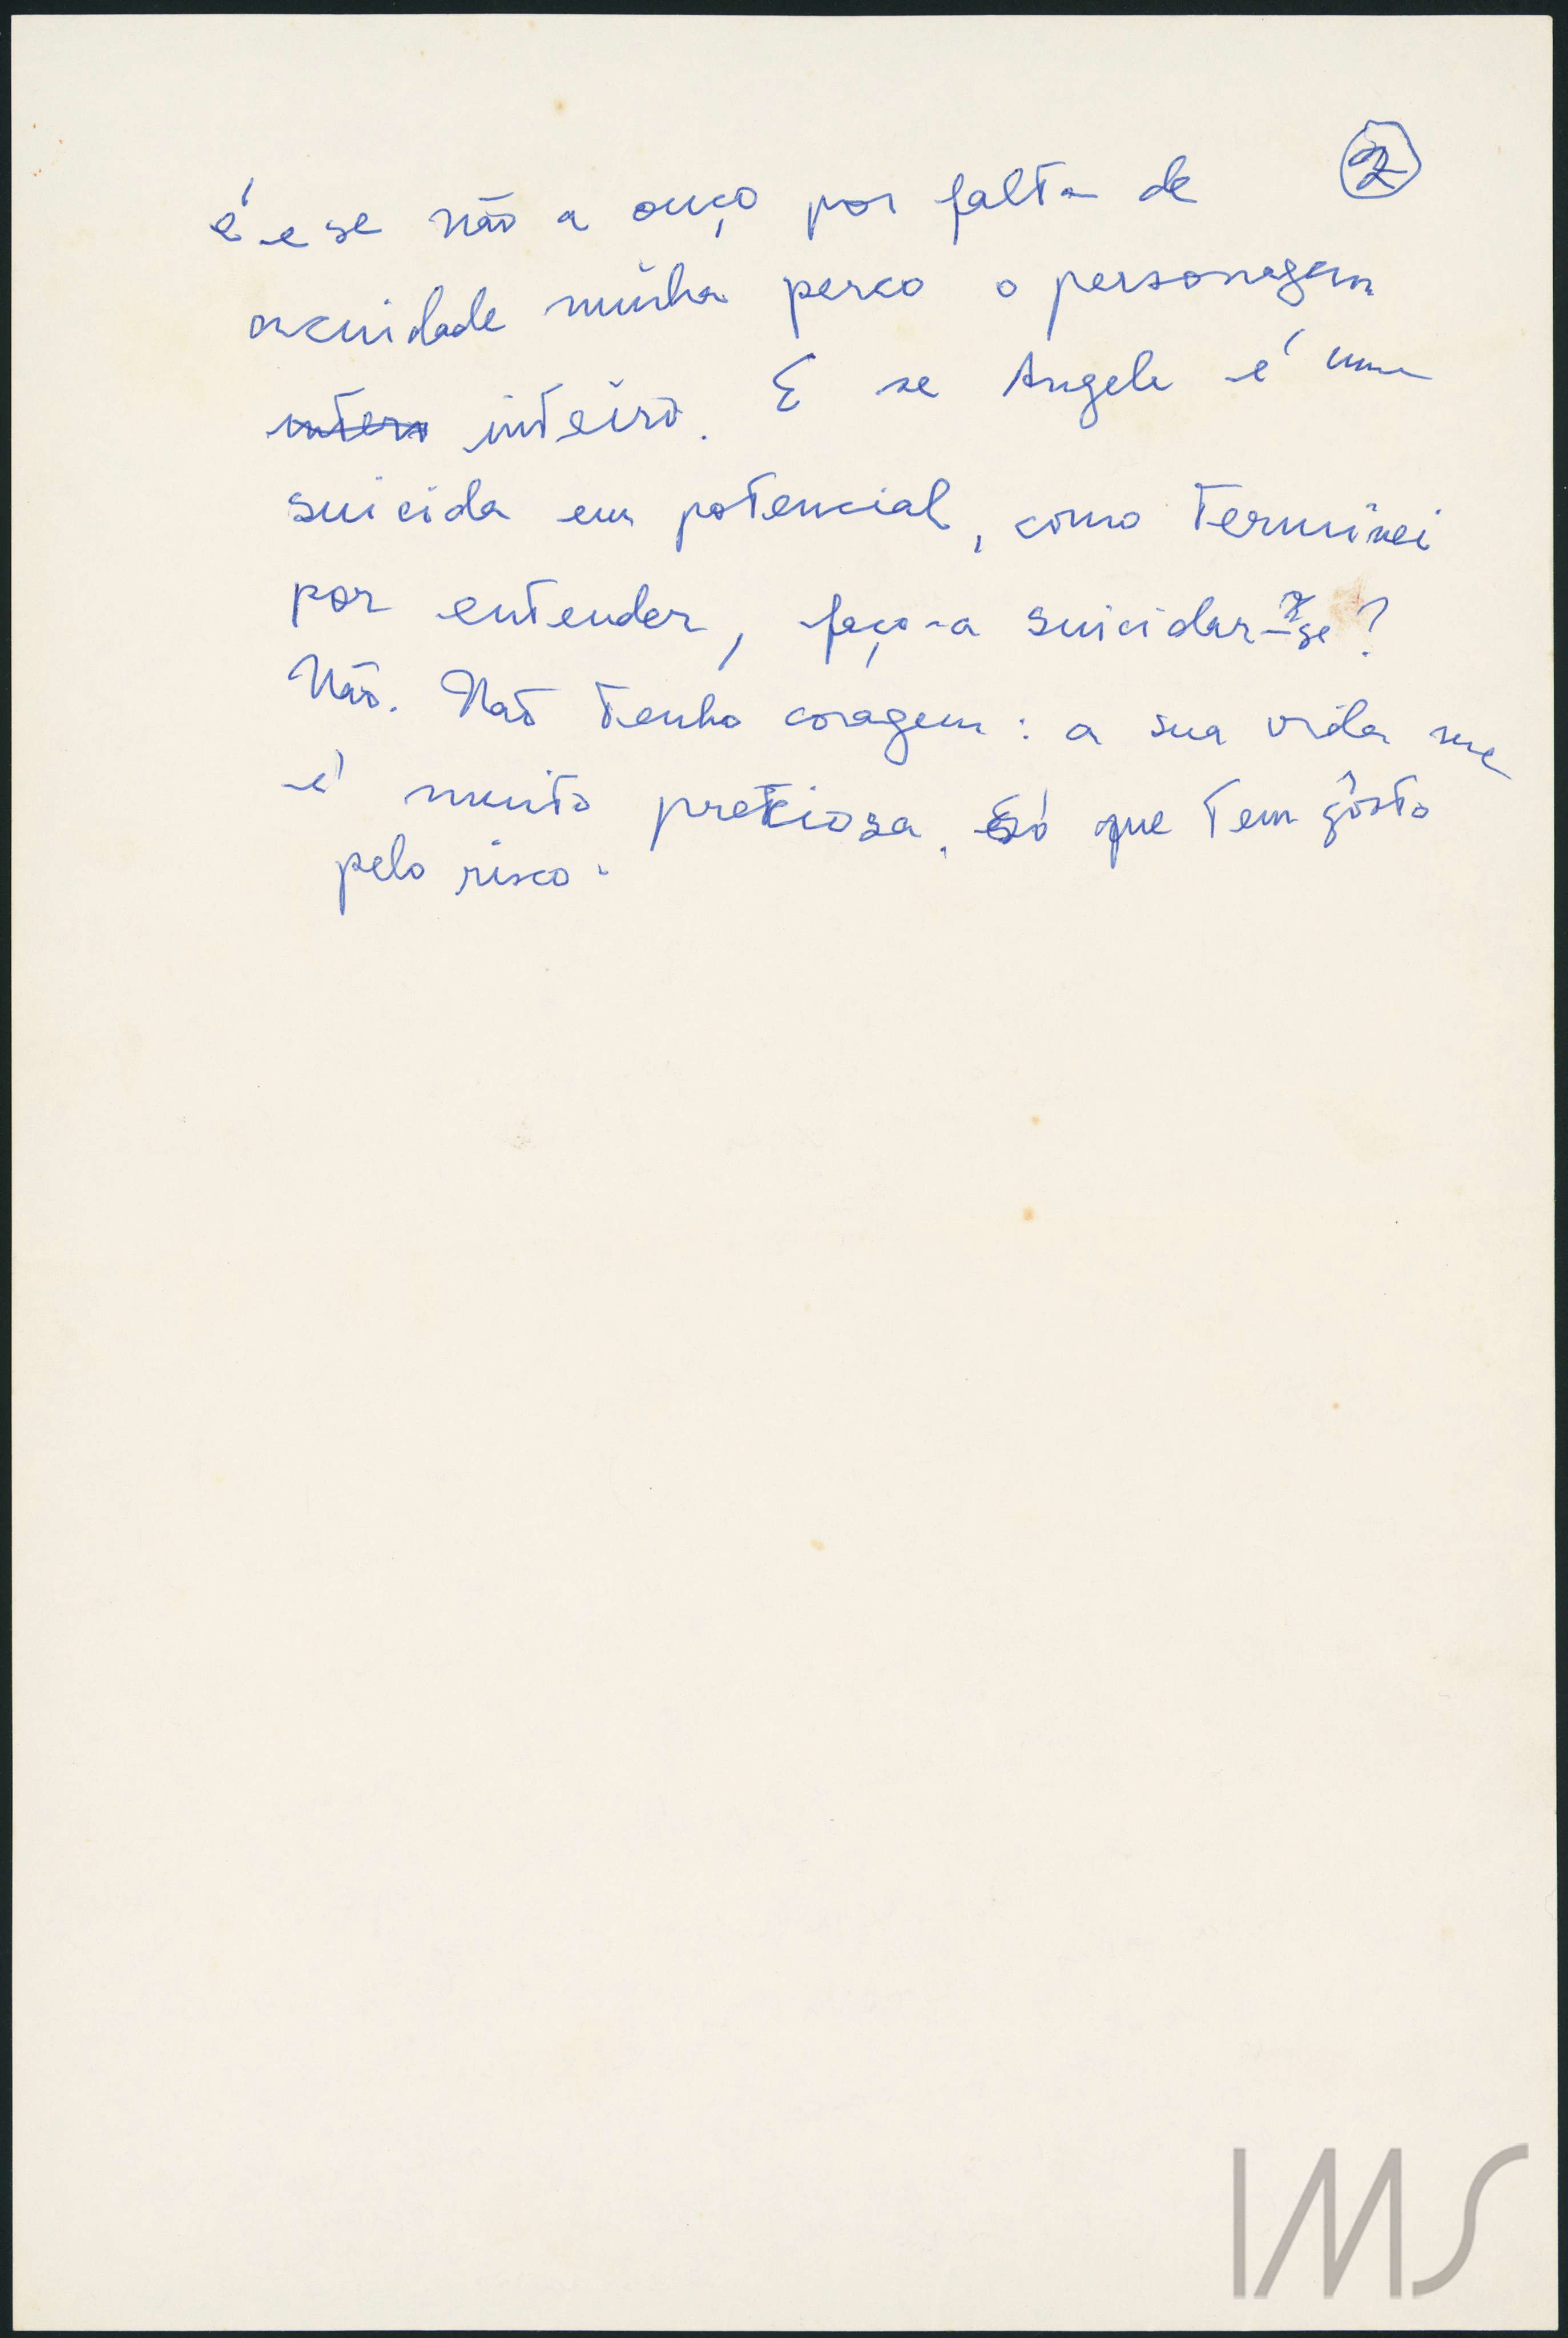 2
é e se não a ouço por falta de
acuidade minha perco o personagem
intero inteiro. E se Angela é uma
suicida em potencial, como terminei
por entender, faço-a suicidar-se?
Não. Não tenho coragem: a sua vida me
é muito preciosa. Só que tem gôsto
pelo risco.
IMS